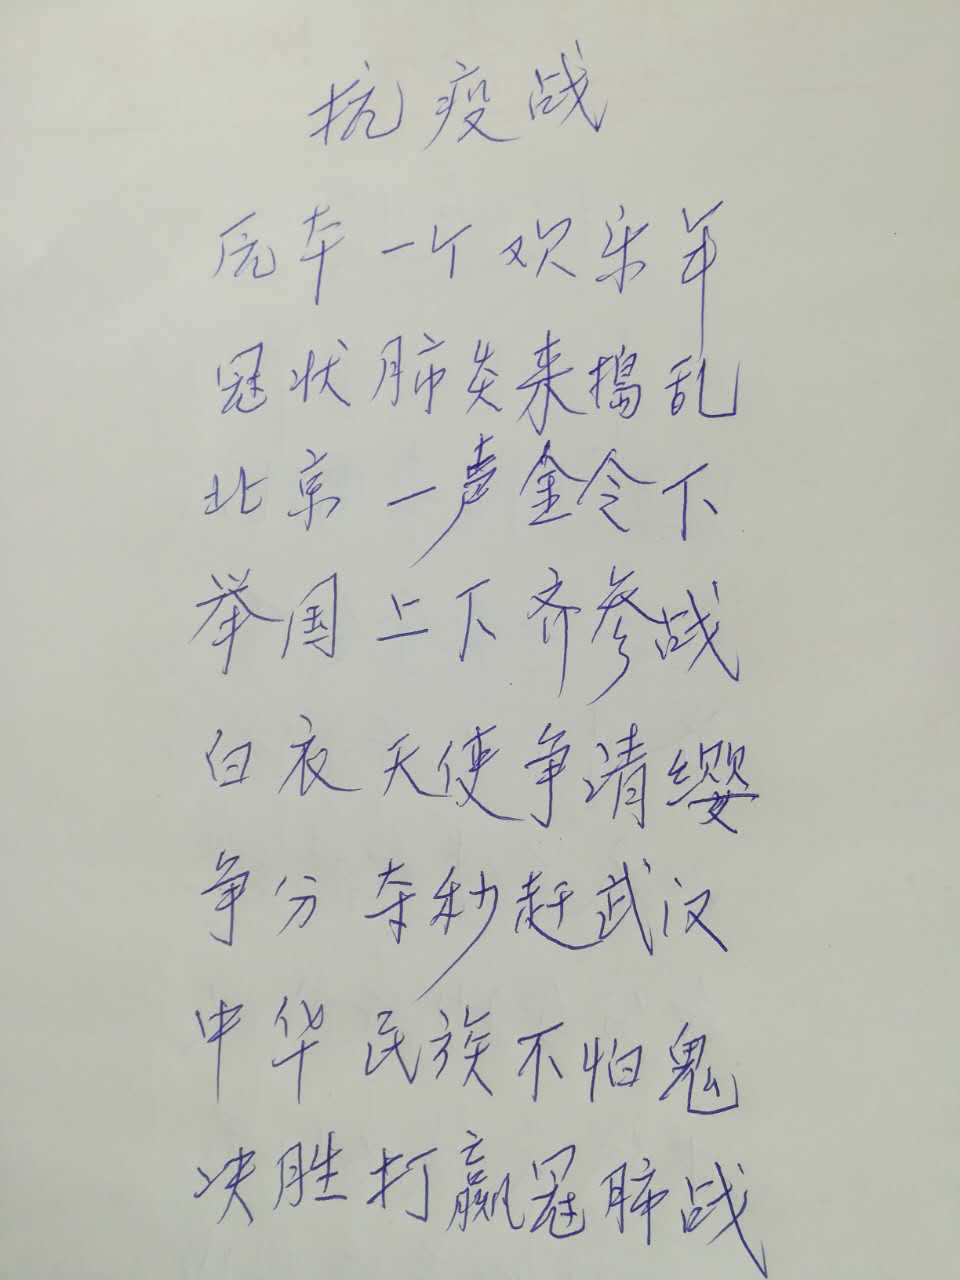 抗疫战
原本一个欢乐年
冠状肺炎来捣乱
北京一声金令下
举国上下齐参战
白衣天使争请缨
争分夺秒赶武汉
中华民族不怕鬼
决胜打赢冠肺战